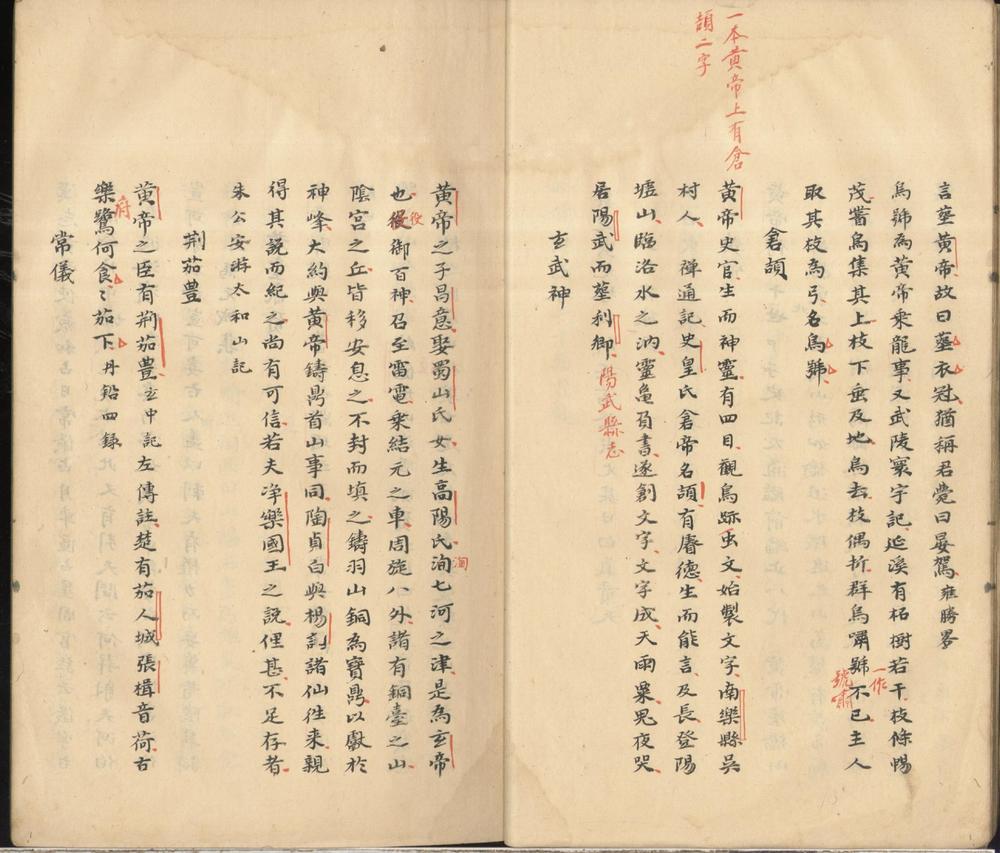 一本黄帝上有倉
頡二字
言塟黄帝故曰塟衣冠猶稱君薨曰晏駕雍勝畧
烏號為黄帝乗龍事又武陵寰宇記延溪有柘樹若干枝條暢
茂嘗烏集其上枝下垂及地烏去枝偶折群烏嘯號不已主人
一作
號嘯
取其枝為弓名烏號
倉頡
黄帝史官生而神靈有四目觀鳥跡虫文始製文字南樂縣吳
村人禪通記史皇氏倉帝名頡有睿德生而能言及長登陽
墟山臨洛水之汭靈龜負書遂創文字文字成天雨粟鬼夜哭
居陽武而塟利鄉陽武縣志
玄武神
黄帝之子昌意娶蜀山氏女生高陽氏洵七河之津是為玄帝
洞
也役御百神召至雷電乗結元之車周旋八外諸有銅臺之山
役
陰宮之丘皆移安息之不封而填之鑄羽山銅為寶鼎以獻於
神峰大約與黄帝鑄鼎首山事同陶貞白與楊許諸仙徃来親
得其說而紀之尚有可信若夫淨樂國王之說俚甚不足存者
朱公安游太和山記
荆茄豊
黄帝之臣有荆茄豊玄中記左傳註楚有茄人城張楫音荷古
樂鷺何食〻茄下丹鉛四錄
府
常儀